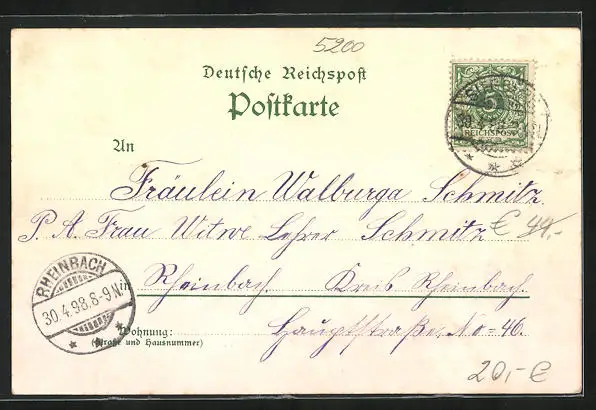 5200
Deutsche Reichspost
Postkarte
5
REICHSPOST
30.4.98
An
Fräulein Walburga Schmitz
P. A. Frau Witwe Lehrer Schmitz
€ 44.-
in Rheinbach. Kreis Rheinbach.
RHEINBACH
30.4.98.8-9N.
Wohnung:
(Straße und Hausnummer)
Hauptstraße, No=46.
20,-€